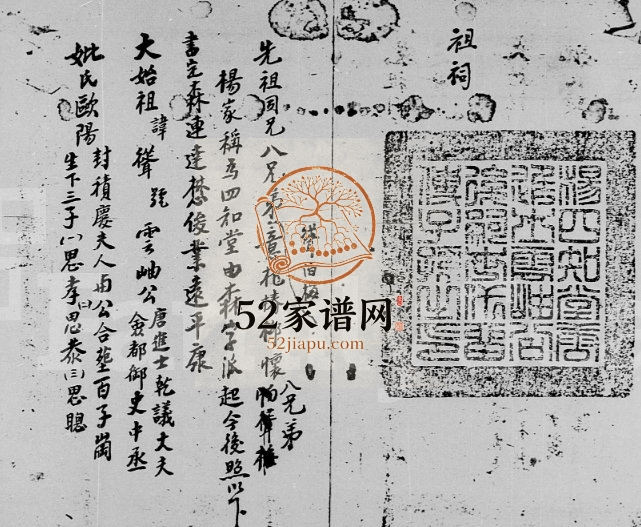 祖祠
楊四知堂
雲岫公
先祖同兄八兄弟
懷
八兄弟
楊家稱為四和堂由森字派起今後照以下
書定森連達懋俊業遠平康
大始祖諱聳號雲岫公唐進士乾議大夫
僉都御史中丞
妣氏歐陽封積慶夫人與公合塟百子崗
生下三子㈠思孝㈡思恭㈢思聰
52家谱网
52jiapu.com